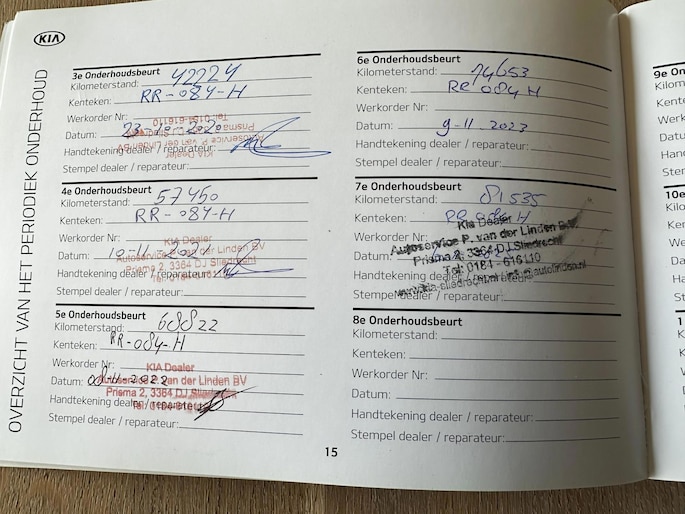 KIA
OVERZICHT VAN HET PERIODIEK ONDERHOUD
3e Onderhoudsbeurt
Kilometerstand: 42224
Kenteken: RR-084-H
Werkorder Nr:
Datum: 23 2020
Handtekening dealer / reparateur:
Stempel dealer / reparateur:
KIA Dealer
Autoservice P. van der Linden BV
Prisma
Tel: 0184-616110
4e Onderhoudsbeurt
Kilometerstand: 57450
Kenteken: RR-084-H
Werkorder Nr:
Datum: 10-11
Handtekening dealer / reparateur:
Stempel dealer / reparateur:
KIA Dealer
Autoservice P. van der Linden BV
Prisma 2, 3364 DJ Sliedrecht
5e Onderhoudsbeurt
Kilometerstand: 68822
Kenteken: RR-084-H
Werkorder Nr:
Datum: 08-11-2022
Handtekening dealer / reparateur:
Stempel dealer / reparateur:
KIA Dealer
Autoservice P. van der Linden BV
Prisma 2, 3364 DJ Sliedrecht
Tel: 0184-616110
6e Onderhoudsbeurt
Kilometerstand: 74653
Kenteken: RR 084 H
Werkorder Nr:
Datum: 9-11-2023
Handtekening dealer / reparateur:
Stempel dealer / reparateur:
7e Onderhoudsbeurt
Kilometerstand: 81535
Kenteken: RR 084 H
Werkorder Nr:
Datum:
Handtekening dealer
Stempel dealer / reparateur:
Kia Dealer
Autoservice P. van der Linden B.V.
Prisma 2, 3364 DJ Sliedrecht
Tel: 0184 - 616110
8e Onderhoudsbeurt
Kilometerstand:
Kenteken:
Werkorder Nr:
Datum:
Handtekening dealer / reparateur:
Stempel dealer / reparateur:
15
9e On
Kilom
Kente
Werk
Datu
Hand
Stem
10e